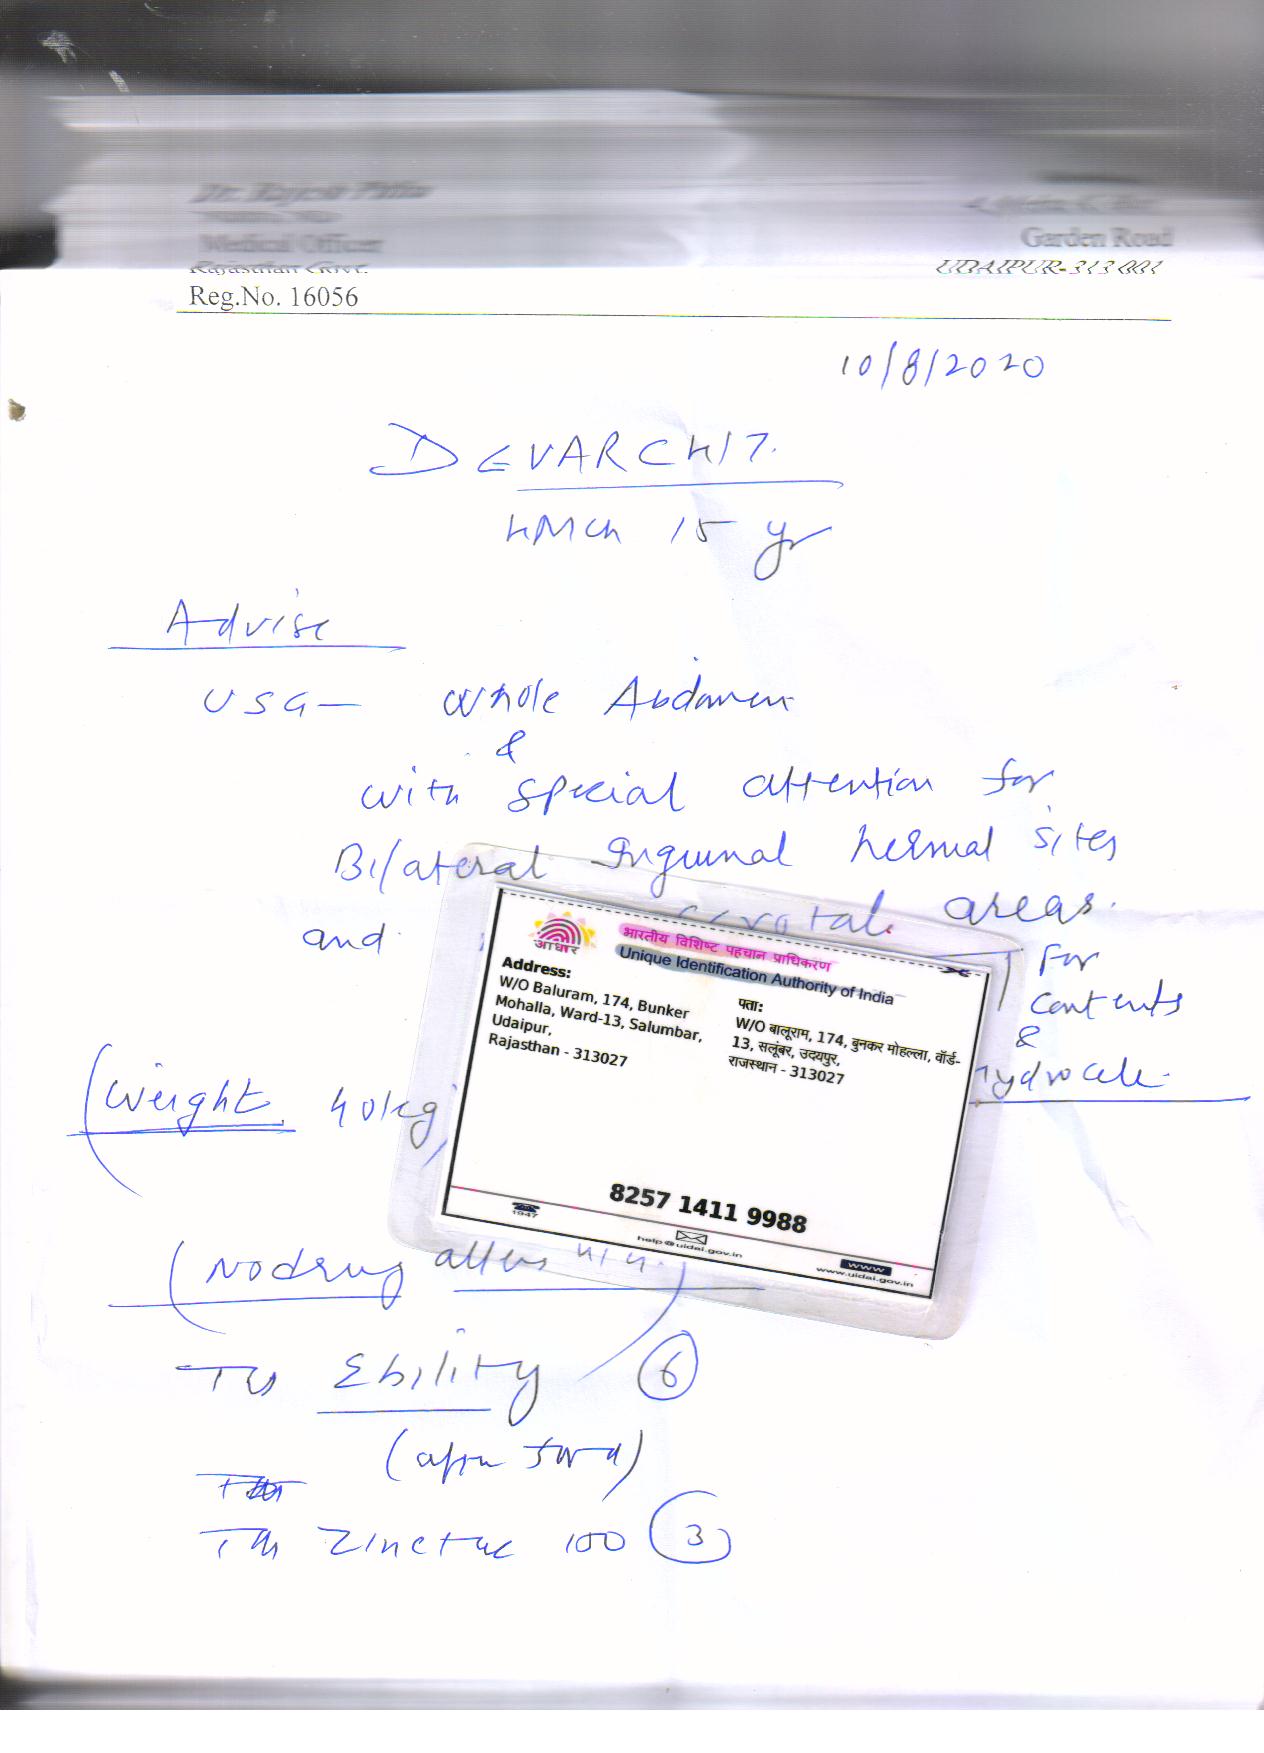 Medical Officer
Garden Road
Rajasthan Govt.
UDAIPUR-313 001
Reg.No. 16056
10/8/2020
DEVARCHIT.
15 yr
Advise
USG- Whole Abdomen
&
with special attention for
Bilateral Inguinal hernial sites
and scrotal areas.
For
contents
&
hydrocele.
(Weight 40kg)
आधार
भारतीय विशिष्ट पहचान प्राधिकरण
Unique Identification Authority of India
Address:
W/O Baluram, 174, Bunker
Mohalla, Ward-13, Salumbar,
Udaipur,
Rajasthan - 313027
पता:
W/O बालूराम, 174, बुनकर मोहल्ला, वॉर्ड-
13, सलूंबर, उदयपुर,
राजस्थान - 313027
8257 1411 9988
1947
help@uidai.gov.in
WWW
www.uidai.gov.in
(No drug
Ebility 6
Zinetac 150 3